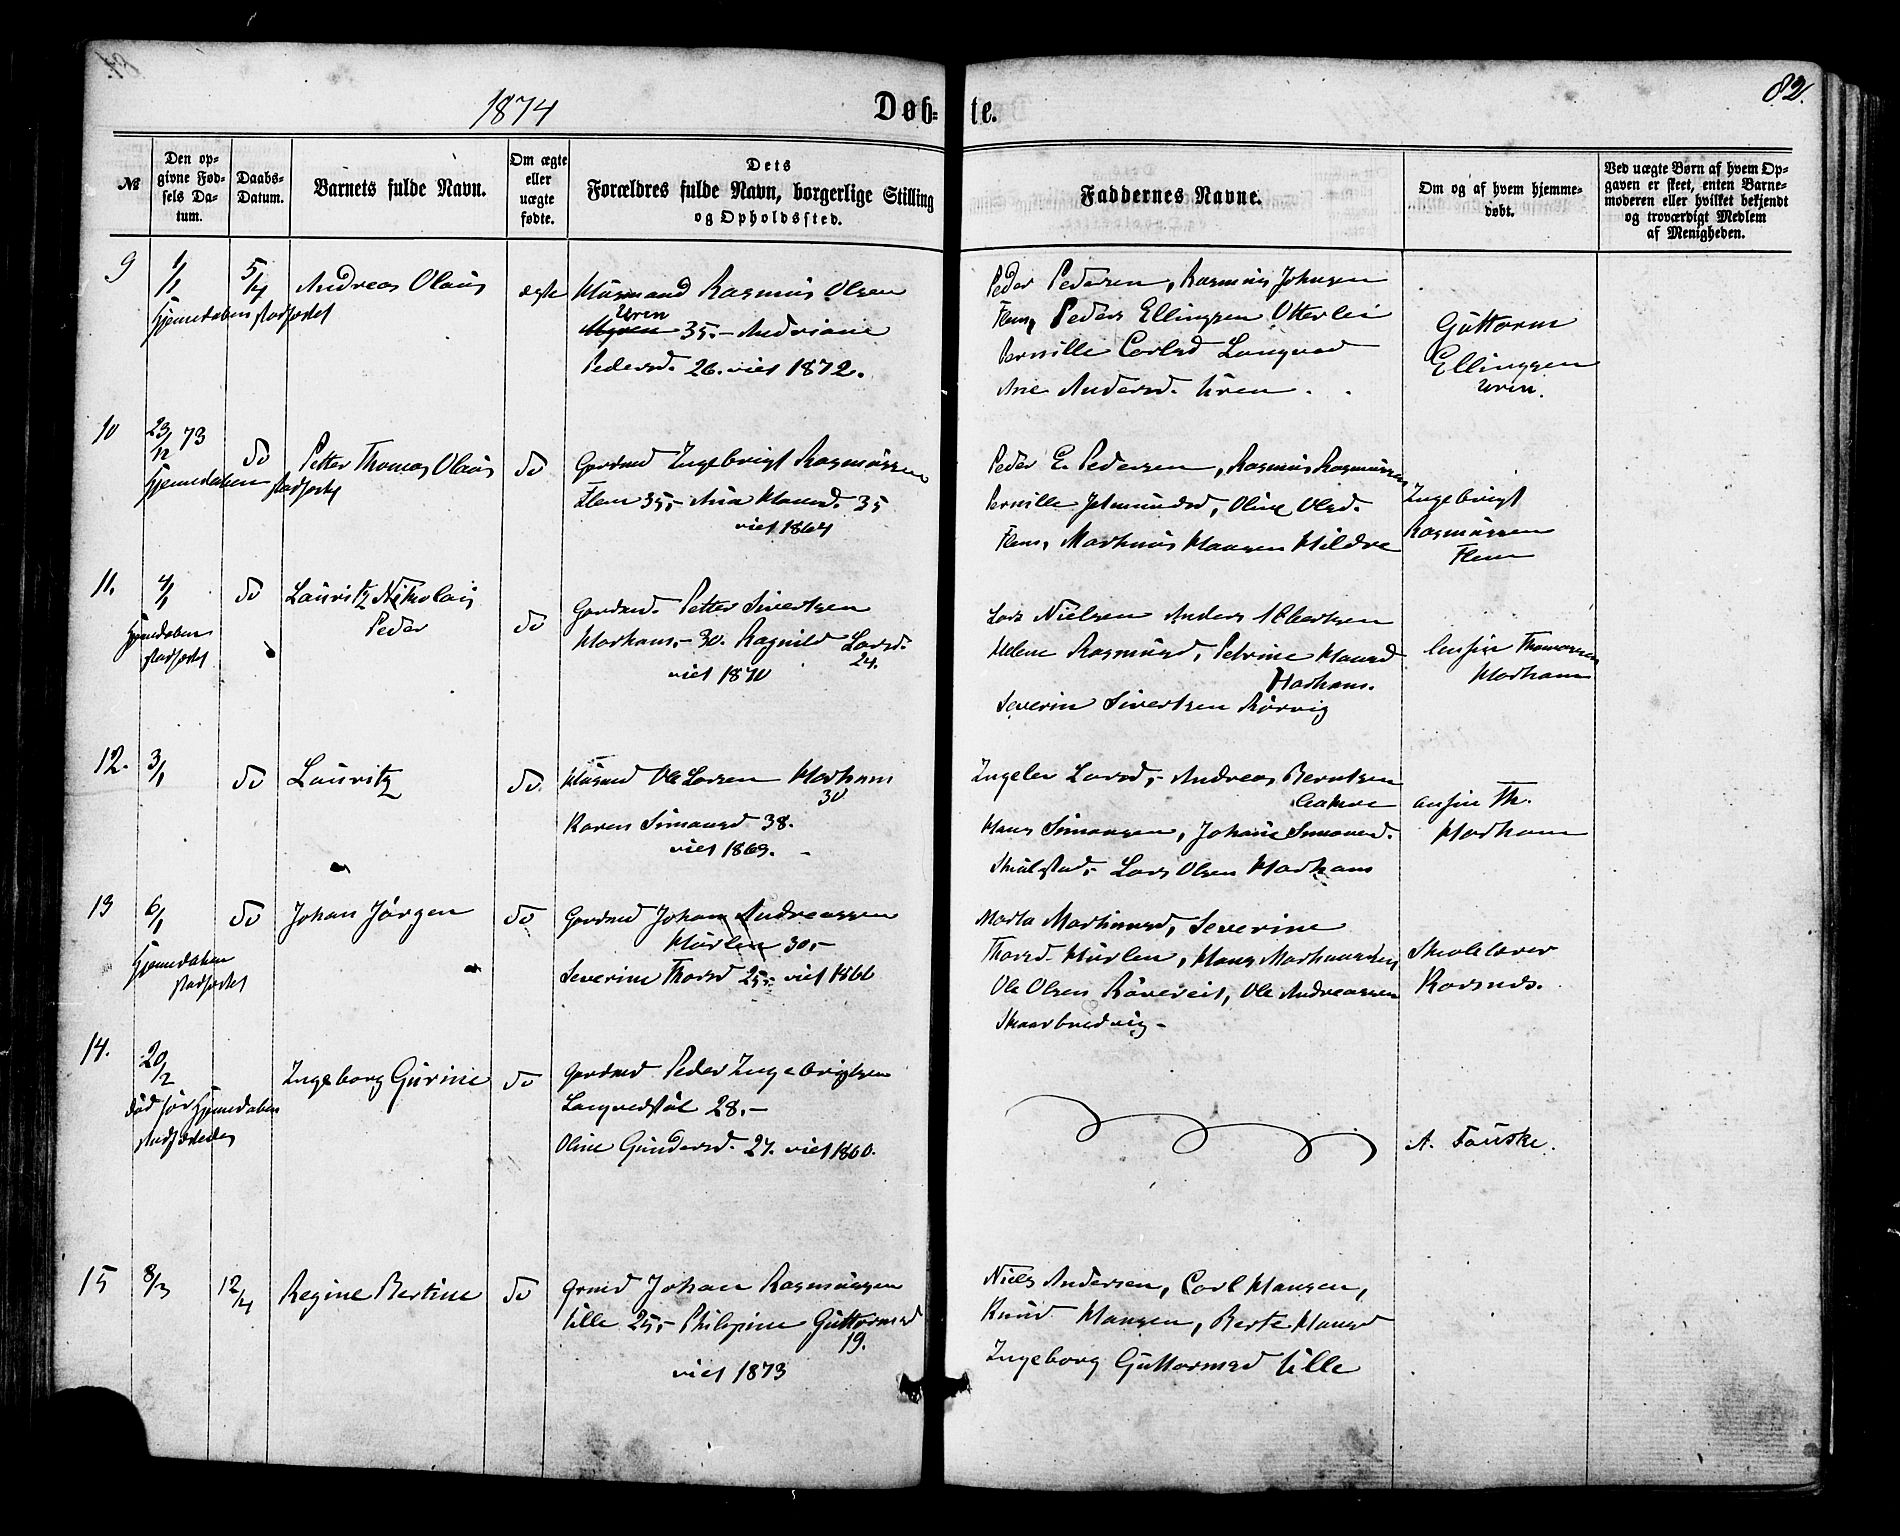 82.
1874
Døb- te.
№
Den op-
givne Fød-
sels Da-
tum.
Daabs-
Datum.
Barnets fulde Navn.
Om ægte
eller
uægte
fødte.
Dets
Forældres fulde Navn, borgerlige Stilling
og Opholdssted.
Faddernes Navne.
Om og af hvem hjemme-
døbt.
Ved uægte Børn af hvem Op-
gaven er skeet, enten Barne-
moderen eller hvilket bekjendt
og troværdigt Medlem
af Menigheden.
9 1/1 5/4 Andreas Olaus ægte Husmand Rasmus Olsen
Uren
35.- Andriane
Pedersd. 26. viet 1872.
Hjemmedaaben stadfæstet
Peder Pedersen, Rasmus Johnsen
Flem, Peder Ellingsen Otterlei
Pernille Carlsd Longvad
Ane Andersd. Uren.
Guttorm
Ellingsen
Uren.
10 23/12 73 do Petter Thomas Olaus do Gardmd Ingebrigt Rasmussen
Flem 35,- Ana Hansd. 35
viet 1864
Hjemmedaaben stadfæstet
Peder E. Pedersen, Rasmus Rasmussen
Pernille Johnmundsd, Oline Olsd.
Flem, Mathias Hansen Hildre
Ingebrigt
Rasmussen
Flem
11. 4/1 do Lauritz Nikolai
Peder
do Gardmd. Petter Sivertsen
Harhams,- 30. Ragnild Larsd.
24.
viet 1870
Hjemmedaaben
stadfæstet
Lars Nielsen Anders Albertsen
Helene Rasmusd, Petrine Hansd
Harhams.
Severin Sivertsen Rørvig
Ansjer Thomassen
Harham
12. 3/1 do Lauritz do. Husmd Ole Larsen Harhams
30
Karen Simonsd 38.
viet 1869.
Ingeler Larsd,- Andreas Berntsen
Aakre
Hans Simonsen, Johane Simonsd.
Skuløstad,- Lars Olsen Harhams
Ansjer Th.
Harham
13 6/1 do Johan Jørgen do Gardmd Johan Andreassen
Hurlen 30,-
Severine Thorsd 25,- viet 1866
Hjemmedaaben
stadfæstet
Marta Mathiasd, Severine
Thorsd Hurlen, Hans Mathiassen
Ole Olsen Røveveit, Ole Andreassen
Skaarbredvig-
Skolelærer
Ravsnds.
14. 20/2 Ingeborg Gurine do Gardmd Peder Ingebrigtsen
Longvedstøl 28.-
Oline Gundersd. 27. viet 1860.
død før Hjemmedaaben
stadfæstedes
A. Fauske.
15 8/3 12/4 Regine Bertine do Grmd Johan Rasmussen
Ulle 25,- Philipine Guttormsd
19.
viet 1873
Niels Andersen, Carl Hansen,
Knud Hansen, Berte Hansd
Ingeborg Guttormsd Ulle